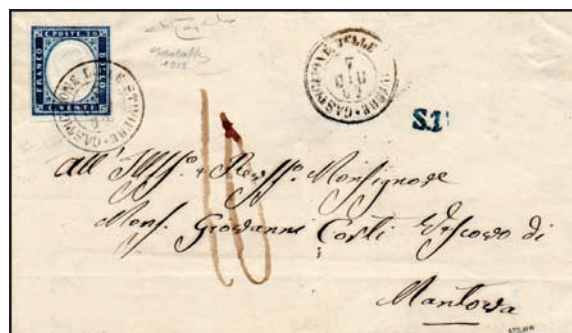 C. POSTE 20
FRANCO
BOLLO
C. VENTI
CASTIGLIONE DELLE STIVIERE
7
GIU
62
CASTIGLIONE DELLE STIVIERE
S.T.
16
All' Illssº. e Revssº. Monsignore
Mons. Giovanni Corti Vescovo di
Mantova